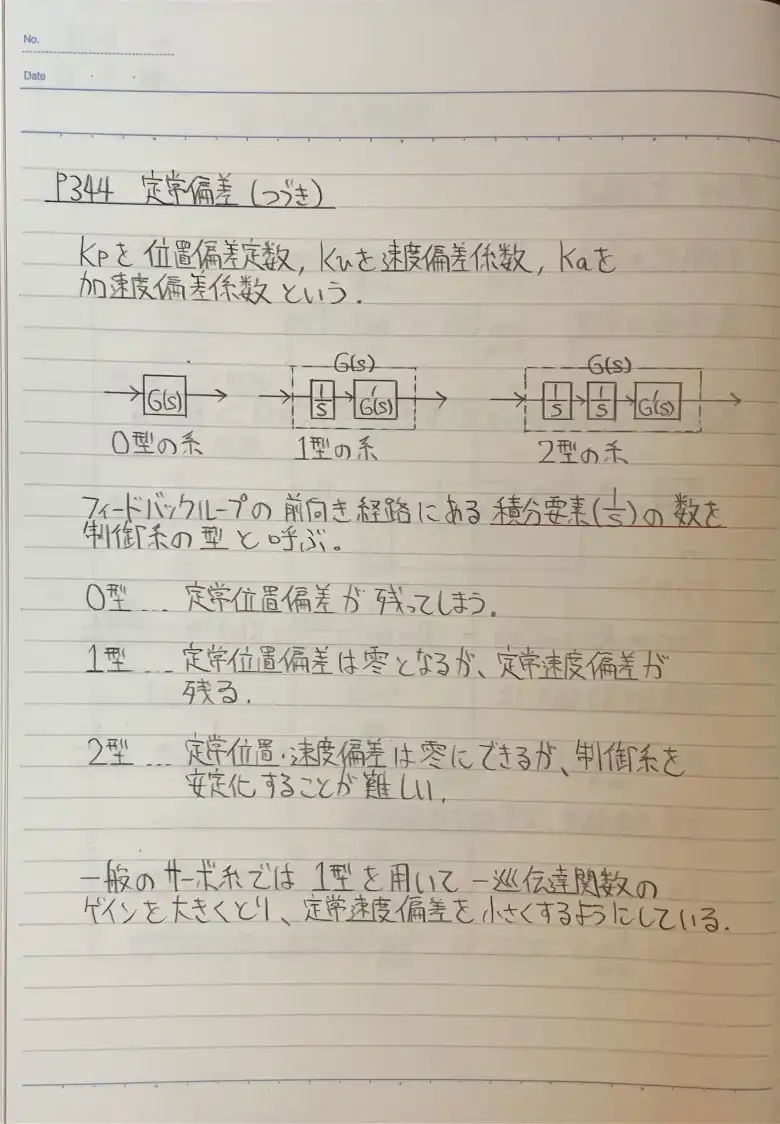 No.
Date
P344 定常偏差(つづき)
Kpを位置偏差定数, Kvを速度偏差係数, Kaを
加速度偏差係数という.
G(s)
G(s)
G(s)
1/s
G'(s)
1/s
1/s
G'(s)
0型の系
1型の系
2型の系
フィードバックループの前向き経路にある積分要素(1/s)の数を
制御系の型と呼ぶ。
0型 … 定常位置偏差が残ってしまう.
1型 … 定常位置偏差は零となるが、定常速度偏差が
残る.
2型 … 定常位置・速度偏差は零にできるが、制御系を
安定化することが難しい.
一般のサーボ系では1型を用いて一巡伝達関数の
ゲインを大きくとり、定常速度偏差を小さくするようにしている.